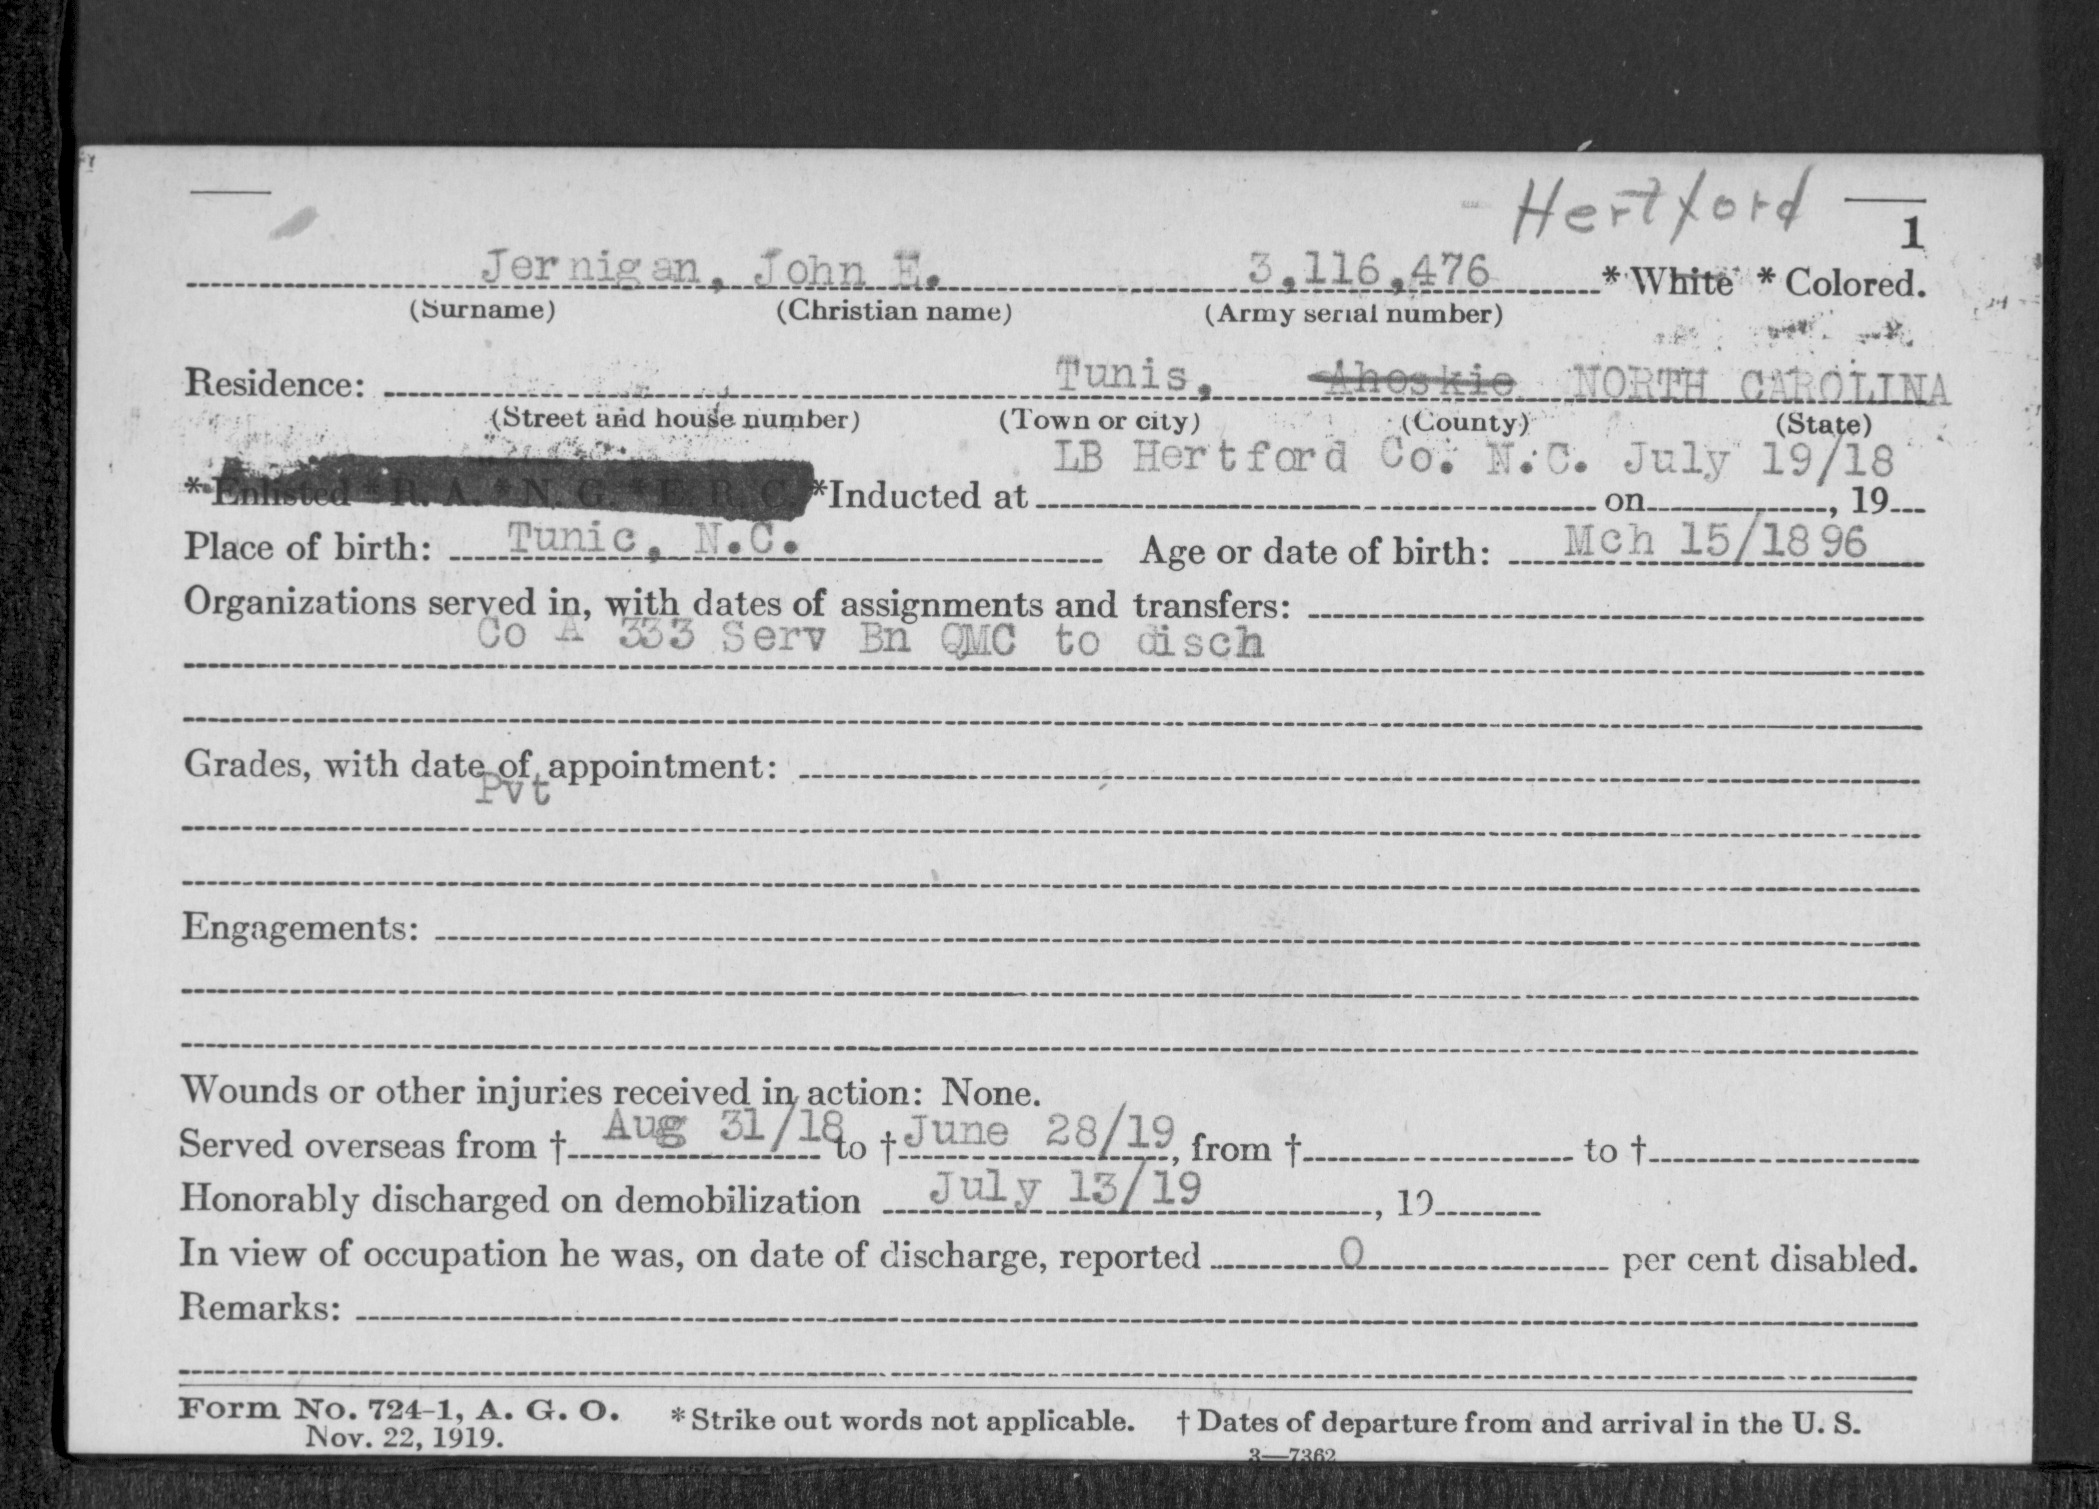 Hertford
1
Jernigan, John E. 3,116,476 * White * Colored.
(Surname) (Christian name) (Army serial number)
Residence: Tunis, Ahoskie NORTH CAROLINA
(Street and house number) (Town or city) (County) (State)
LB Hertford Co. N.C. July 19/18
* Enlisted * R. A. * N. G. * E. R. C. *Inducted at on , 19
Place of birth: Tunic, N.C. Age or date of birth: Mch 15/1896
Organizations served in, with dates of assignments and transfers:
Co A 333 Serv Bn QMC to disch
Grades, with date of appointment:
Pvt
Engagements:
Wounds or other injuries received in action: None.
Served overseas from † Aug 31/18 to † June 28/19, from † to †
Honorably discharged on demobilization July 13/19, 19
In view of occupation he was, on date of discharge, reported 0 per cent disabled.
Remarks:
Form No. 724-1, A. G. O. * Strike out words not applicable. † Dates of departure from and arrival in the U. S.
Nov. 22, 1919.
3—7362